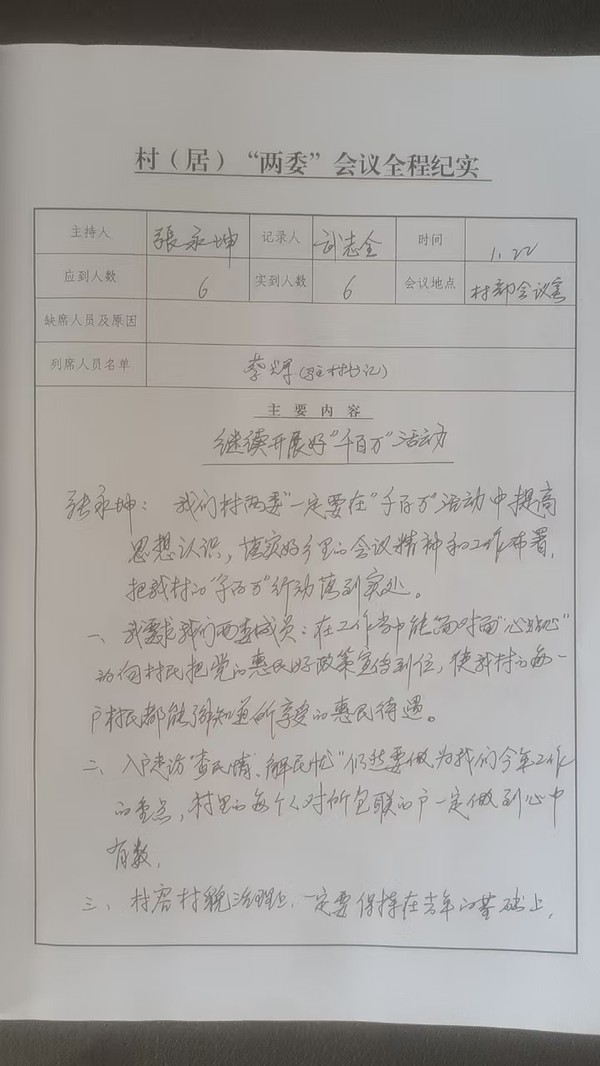 村（居）“两委”会议全程纪实
主持人 張永坤 记录人 武志全 时间 1.22
应到人数 6 实到人数 6 会议地点 村部会议室
缺席人员及原因
列席人员名单 蔡辉（驻村书记）
主要内容
继续开展好“千百万”活动
张永坤：我们村两委“一定要在“千百万”活动中提高
思想认识，落实好乡里的会议精神和工作布署，
把我村的“千百万”行动落到实处。
一、我要求我们两委成员：在工作当中能“面对面”“心贴心”
的向村民把党的惠民好政策宣传到位，使我村的每一
户村民都能够知道所享受的惠民待遇。
二、入户走访“查民情、解民忧”仍然要做为我们今年工作
的重点，村里的每个人对所包联的户一定做到心中
有数。
三、村容村貌治理上，一定要保持在去年的基础上，